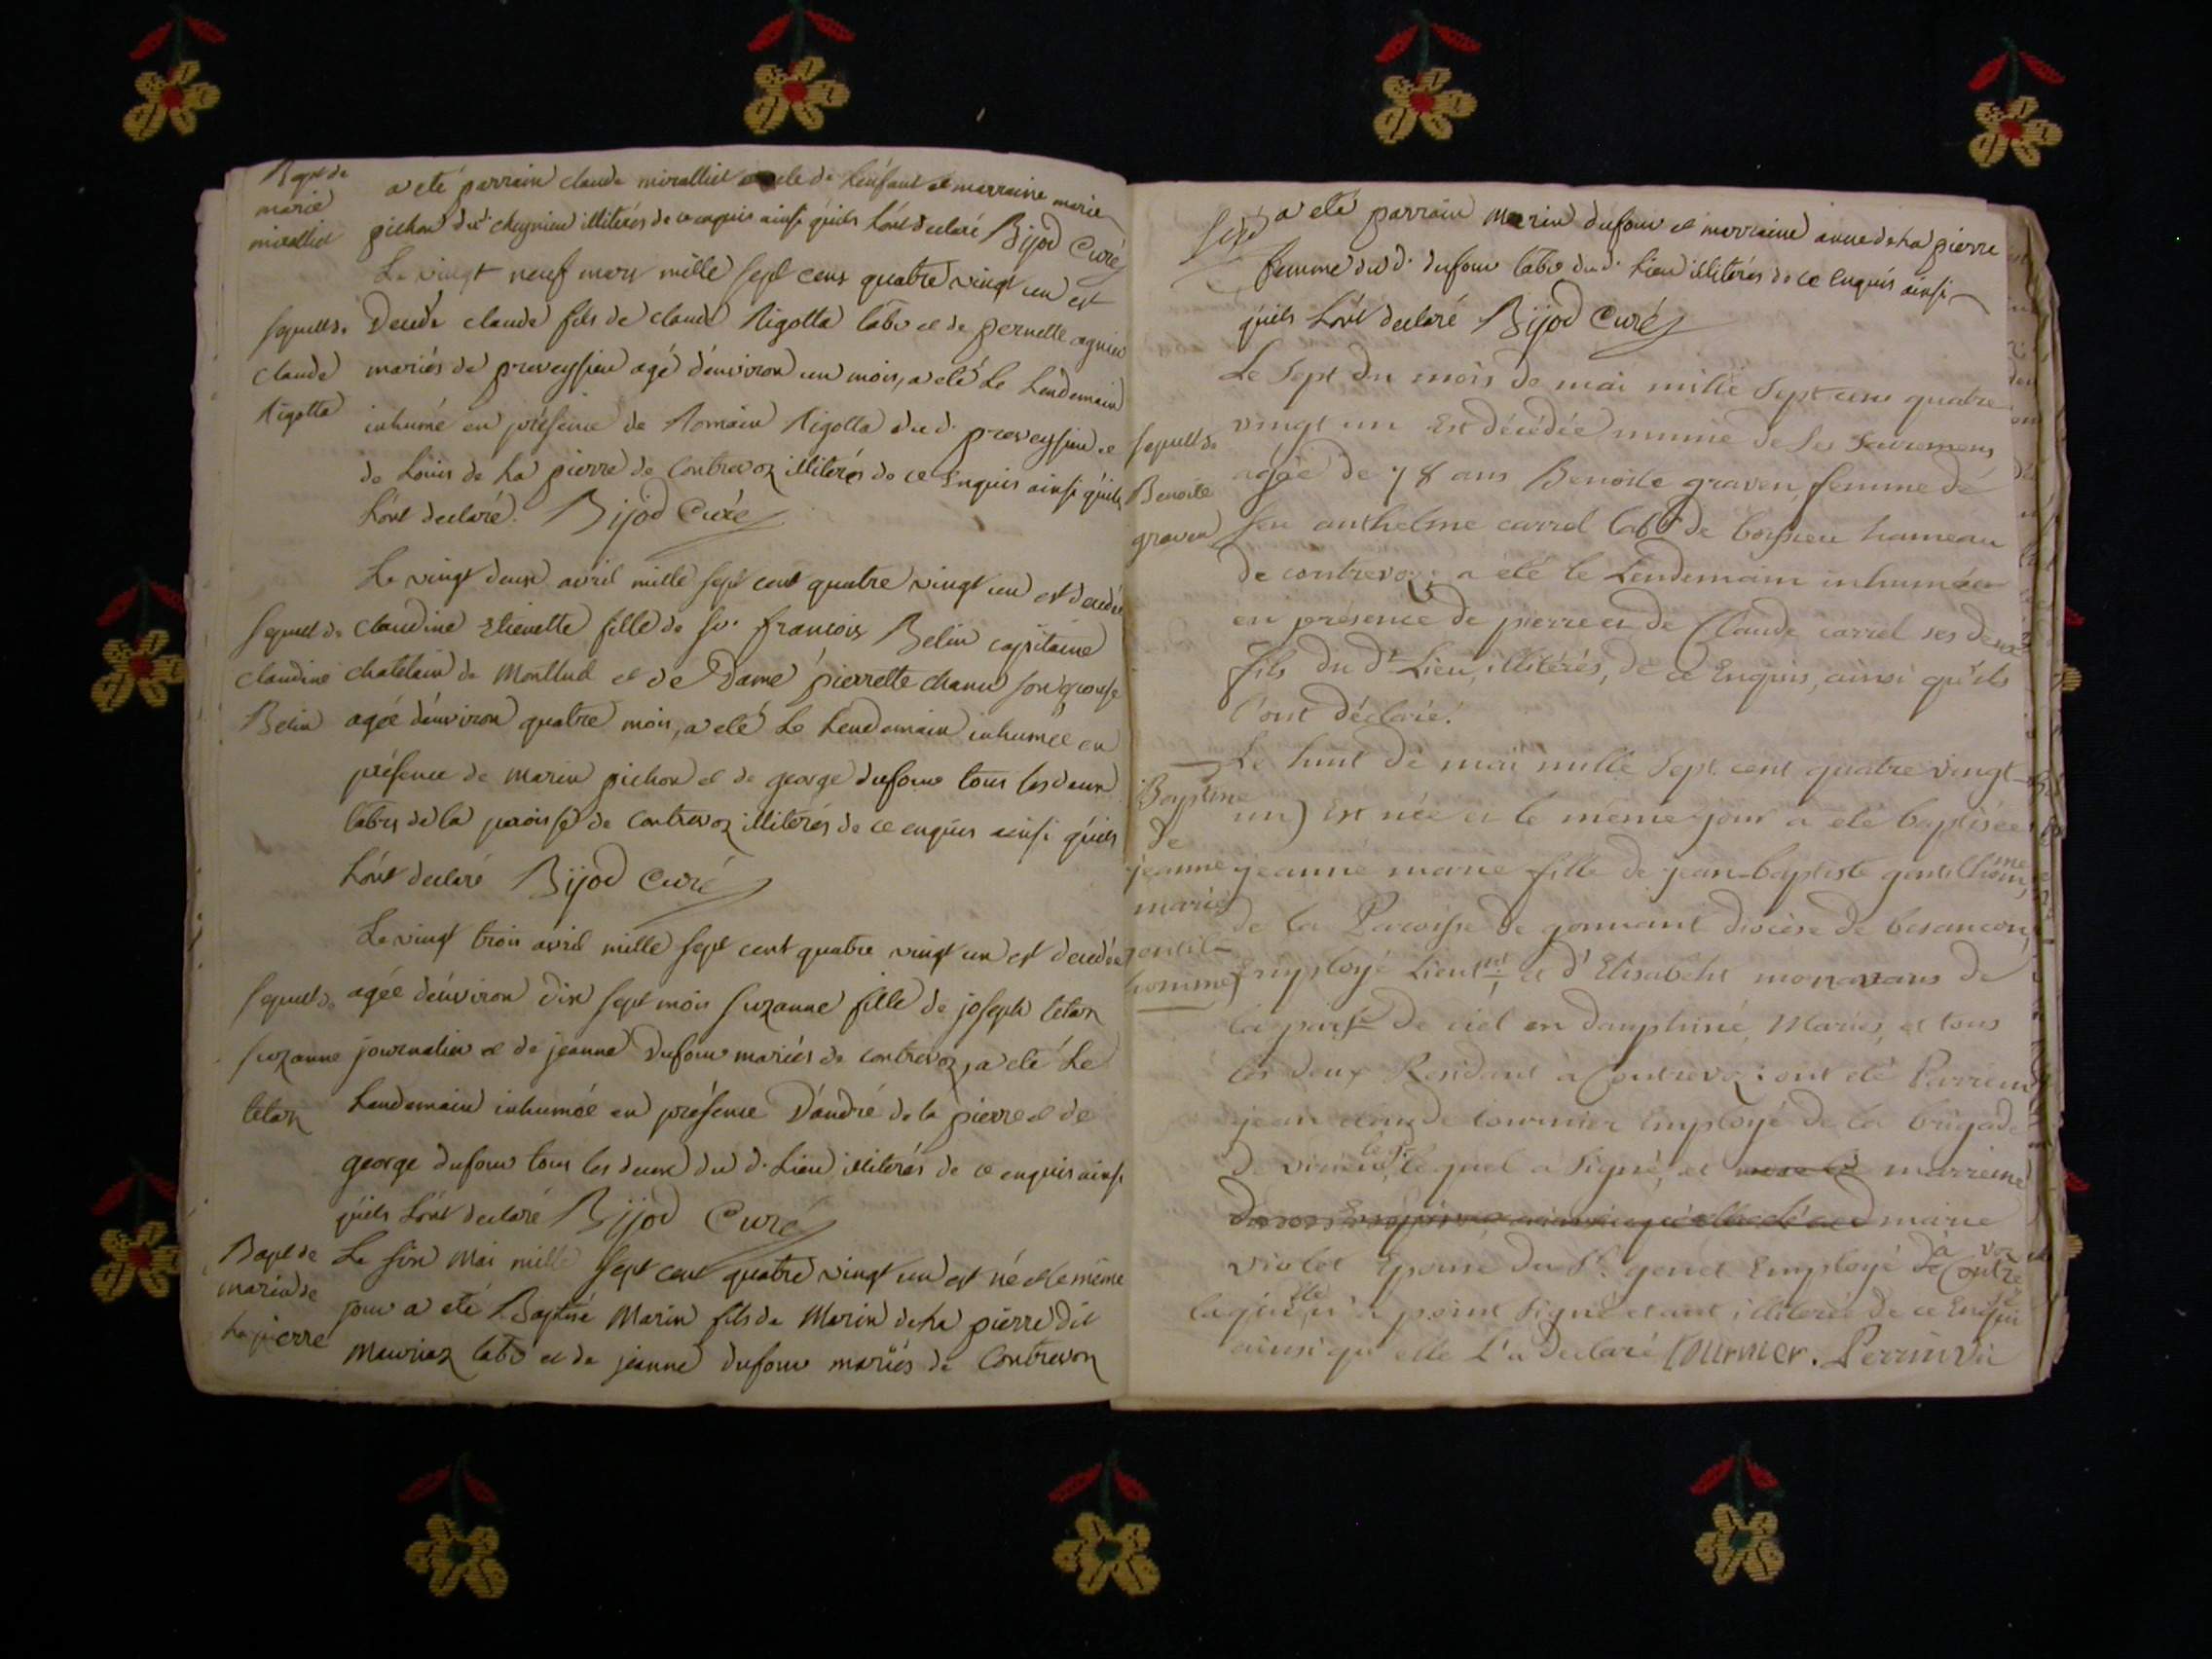 Bapt de
marie
miralliet
a eté parrain claude miralliet oncle de L'enfant et marraine marie
pichon dud. cheynieu illiterés de ce enquis ainsi qu'ils L'ont declaré Bijod Curé
Le vingt neuf mars mille sept cens quatre vingt un est
Sepult de
claude
Rigotta
Decedé claude fils de claude Rigotta labr et de pernette agnieu
mariés de preveyssieu agé d'environ un mois, a eté Le Lendemain
inhumé en présence de Romain Rigotta dud. preveyssieu et
de Louis de La pierre de Contrevoz illiterés de ce Enquis ainsi qu'ils
L'ont declaré. Bijod Curé
Le vingt deux avril mille sept cent quatre vingt un est decedée
Sepult de
claudine
Belin
claudine Etienette fille de sr. francois Belin capitaine
chatelain de Montlud et de Dame pierrette chanu son epouse
agée d'environ quatre mois, a eté Le Lendemain inhumée en
présence de marin pichon et de george dufour tous les deux
labrs de la paroisse de Contrevoz illiterés de ce enquis ainsi qu'ils
L'ont declaré Bijod Curé
Le vingt trois avril mille sept cent quatre vingt un est decedée
Sepult de
suzanne
tetaz
agée d'environ dix sept mois suzanne fille de joseph tetaz
journalier et de jeanne Dufour mariés de contrevoz, a eté Le
Lendemain inhumée en présence D'andré de la pierre et de
george dufour tous les deux du d. Lieu illiterés de ce enquis ainsi
qu'ils L'ont declaré Bijod Curé
Bapt de
marin de
La pierre
Le six Mai mille sept cent quatre vingt un est né et le même
jour a eté Baptisé Marin fils de Marin de La pierre Dit
Mauriaz labr et de jeanne dufour mariés de Contrevoz
a eté parrain Marin dufour et marraine anne de La pierre
femme dud. dufour labr dud. Lieu illiterés de ce enquis ainsi
qu'ils L'ont declaré Bijod Curé
Sepult de
Benoite
graven
Le Sept du mois de mai mille Sept cens quatre
vingt un Est décédée munie de Ses Sacremens
agée de 78 ans Benoite graven, femme de
feu anthelme carrel labr de boissieu hameau
de contrevoz; a été le Lendemain inhumée
en présence de pierre et de Claude carrel ses deux
fils du dt Lieu, illitérés, de ce Enquis, ainsi qu'ils
l'ont déclaré.
Baptême
de
jeanne
marie
gentil-
homme
Le huit de mai mille Sept cent quatre vingt
un Est née et le même jour a eté baptisée
jeanne marie fille de jean-baptiste gentilhomme,
de la Paroisse de gonnant diocèse de besancon,
Employé Lieutnt, et d'Elisabeht monavans de
la parsse de ciel en dauphiné, Mariés, et tous
les deux Residant à Contrevoz: ont eté Parrain
jean claude tournier Employé de la brigade
de virieu, lequel a signé, et marreine
marie
violet Epouse du Sr. genet Employé à Contrevoz
laquelle n'a point signé etant illiterée de ce Enquise
ainsi qu'elle L'a declaré tournier. Perrin vic